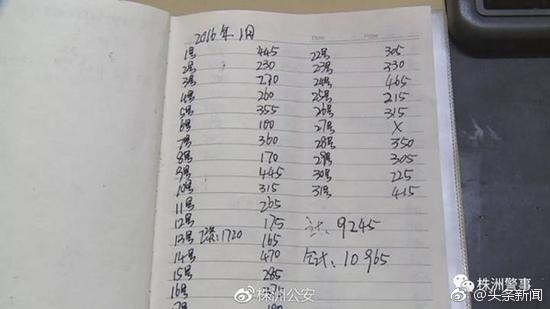 2016年1月
1号 445
2号 230
3号 230
4号 260
5号 355
6号 100
7号 360
8号 170
9号 445
10号 315
11号 205
12号 175
13号 1720 165
14号 470
15号 285
16号
22号 305
23号 330
24号 465
25号 215
26号 315
27号 X
28号 350
29号 305
30号 225
31号 415
9245
合计:10965
株洲公安
株洲警事
@头条新闻